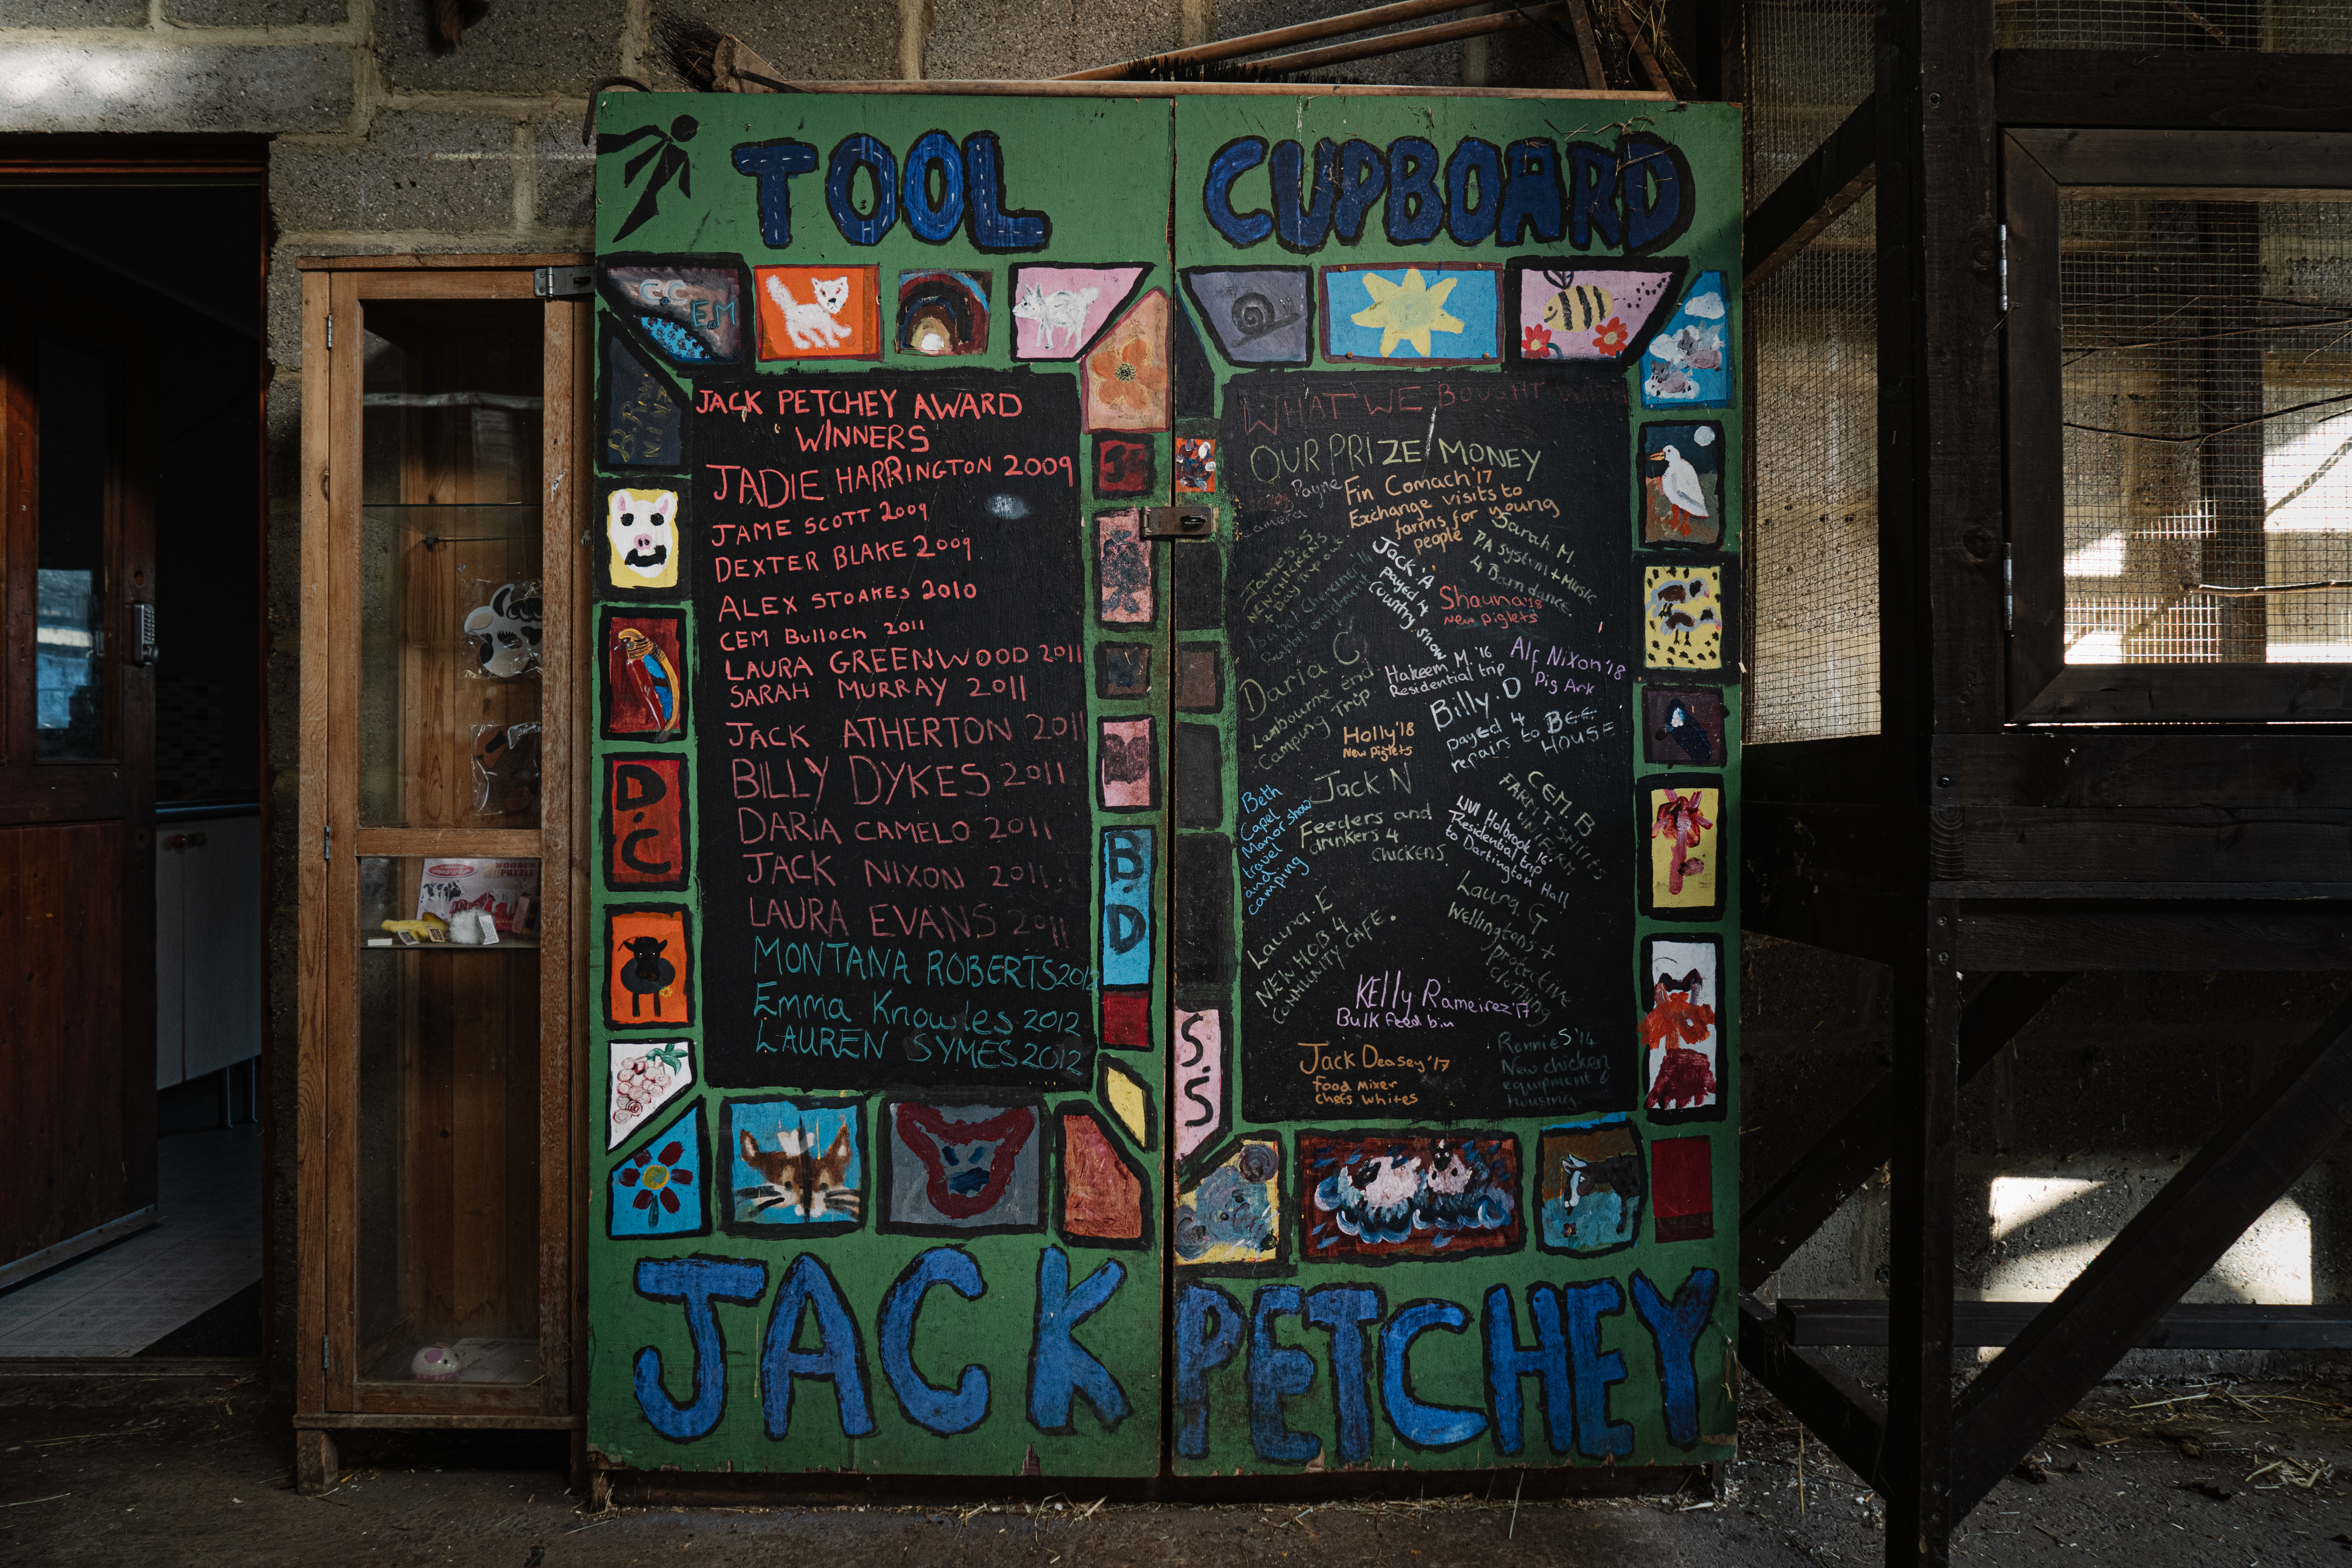 TOOL CUPBOARD
C.C
E.M
JACK PETCHEY AWARD
WINNERS
JADIE HARRINGTON 2009
JAME SCOTT 2009
DEXTER BLAKE 2009
ALEX STOAKES 2010
CEM Bulloch 2011
LAURA GREENWOOD 2011
SARAH MURRAY 2011
JACK ATHERTON 2011
BILLY DYKES 2011
DARIA CAMELO 2011
JACK NIXON 2011
LAURA EVANS 2011
MONTANA ROBERTS 2012
Emma Knowles 2012
LAUREN SYMES 2012
D.C
B.D
WHAT WE BOUGHT WITH
OUR PRIZE MONEY
Payne
Fin Comach '17
Exchange visits to
farms for young
people
James. S
NEW CHICKENS
+ Day trip out
Rabbit enrichment
Jack A
payed 4
country show
Sarah M.
PA system + Music
4 Barn dance
Shauna '18
New piglets
Daria C
Lambourne end
Camping Trip
Hakeem M '16
Residential trip
Alf Nixon '18
Pig Ark
Billy. D
payed 4
repairs to BEE
HOUSE
Holly '18
New Piglets
Jack N
Feeders and
drinkers 4
chickens
Beth
Capel
Manor show
travel
and
camping
CEM. B
FARM T SHIRTS
UNIFORM
LIVI Holbrook '16
Residential trip
to Dartington Hall
Laura. E
NEW HOB 4
COMMUNITY CAFE.
Laura. G
Wellingtons +
protective
clothing
KElly Rameirez '17
Bulk Feed bin
Jack Deasey '17
Food mixer
chefs whites
Ronnie S '14
New chicken
equipment &
housing
S.S
JACK PETCHEY
WOODEN
PUZZLE